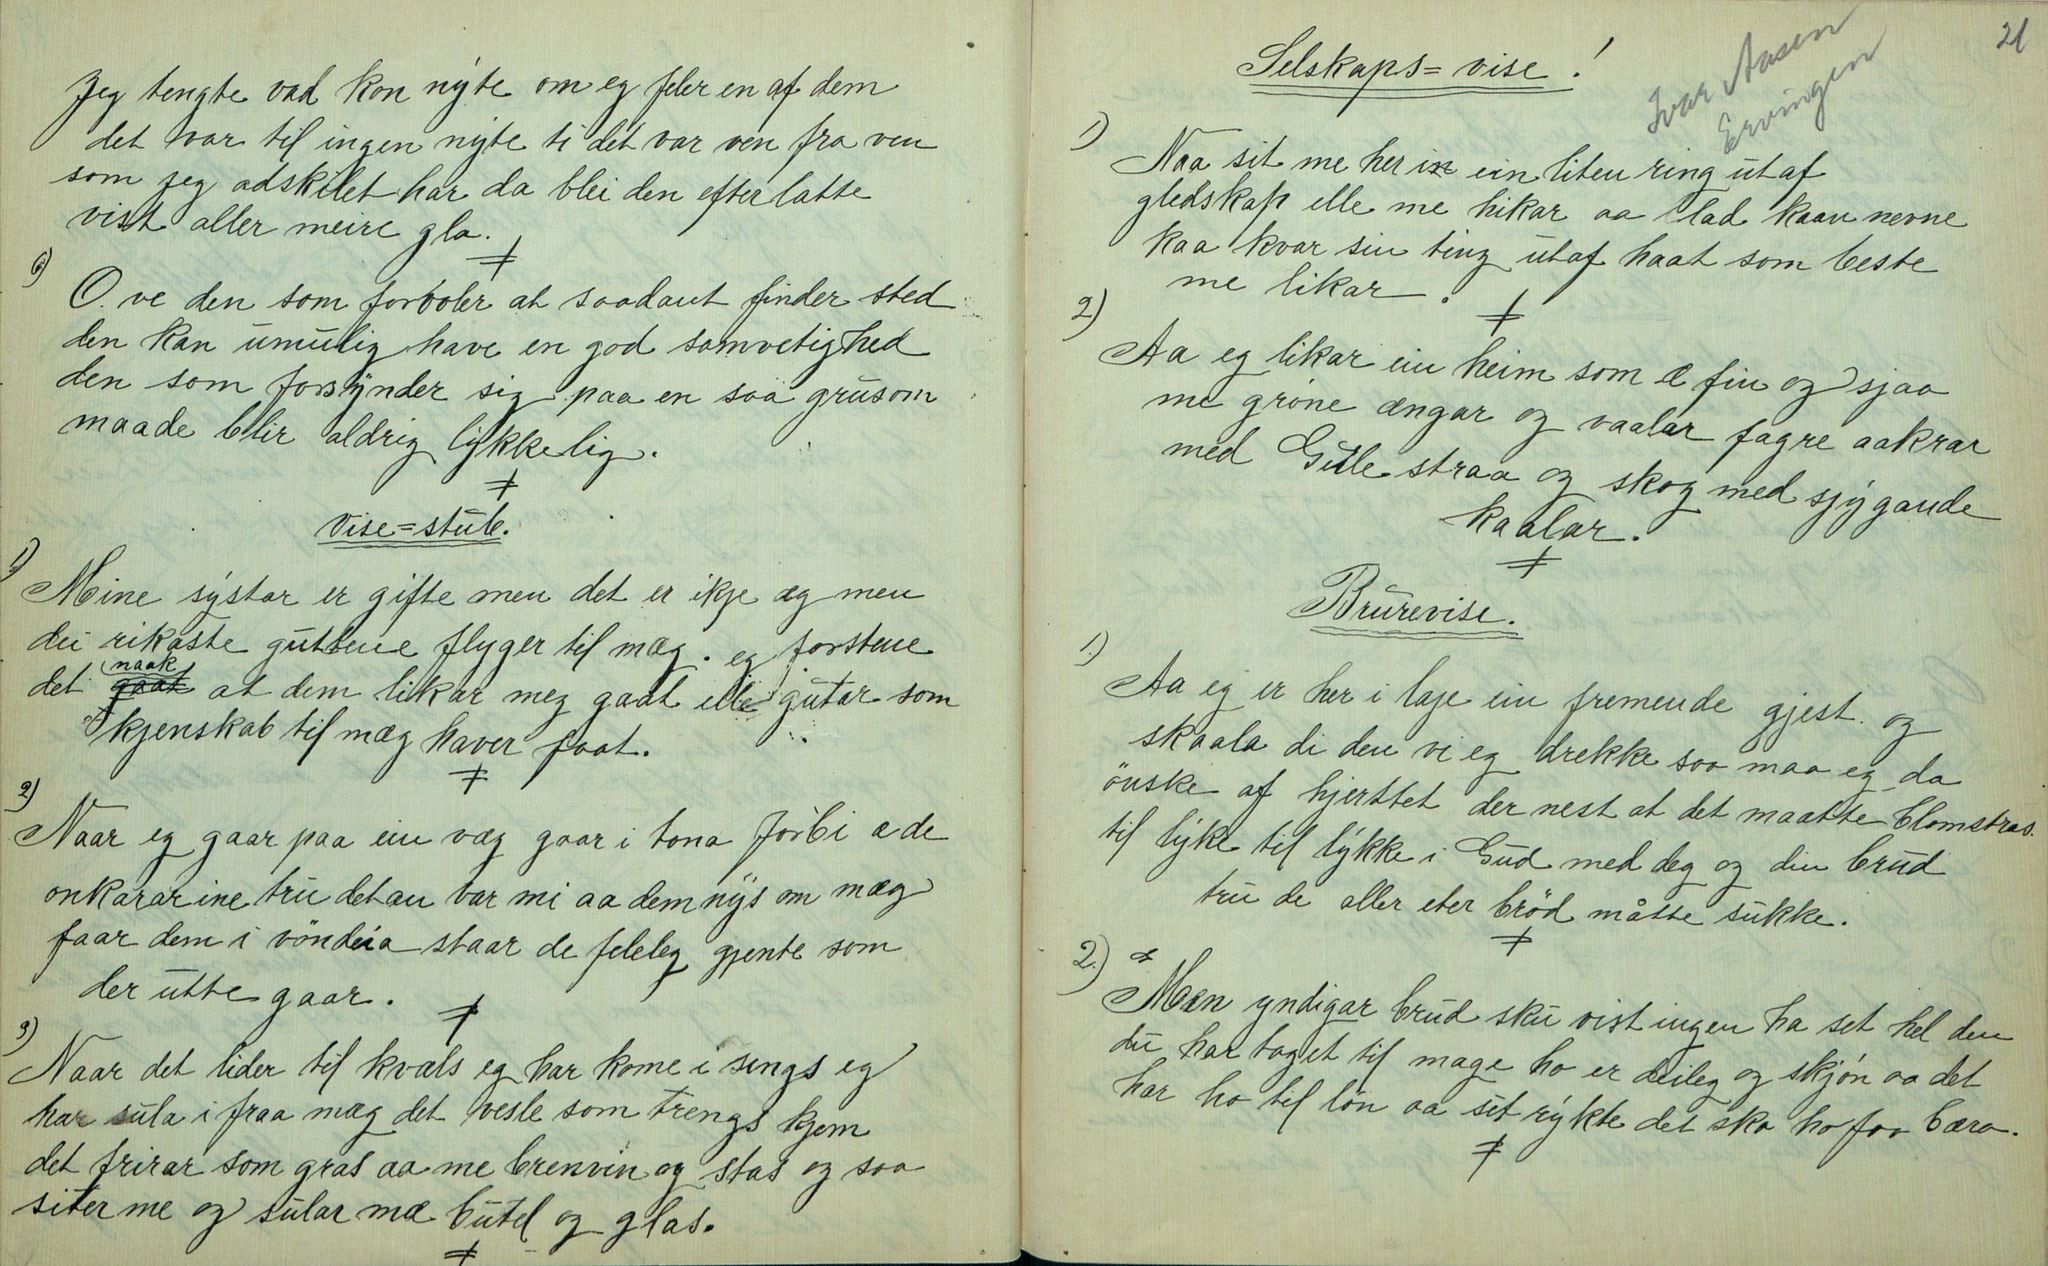 Jeg tengte vad kon nyte om eg feler en af dem
det var til ingen nyte ti det var ven fra ven
som jeg adskilet har da blei den efterlatte
vist aller meire gla.
6)
O. ve den som forvoler at saadant finder sted
den kan umulig have en god samvetighed
den som forsynder sig paa en saa grusom
maade blir aldrig lykkelig.
Vise=stub.
1)
Mine systar er gifte men det er ikje æg men
dei rikaste guttene flyger til mæg. eg forstene
naak
det gaat at dem likar meg gaat elle gutar som
kjenskab til mæg haver faat.
2)
Naar eg gaar paa ein væg gaar i tona forbi æ de
onkarar ine tru det an var mi aa dem nys om mæg
faar dem i vöndeia staar de feleleg gjente som
der utte gaar.
3)
Naar det lider til kvæls eg har kome i sengs eg
har sula i fraa mæg det vesle som trengs kjem
det frirar som gras aa me brenvin og stas og saa
siter me og sular mæ butel og glas.
21
Selskaps=vise!
Ivar Aasen
Ervingen
1)
Naa sit me her in ein liten ring ut af
gledskap elle me hikar aa lad kaan nevne
kaa kvar sin ting ut af haat som beste
me likar.
2)
Aa eg likar ein heim som æ fin og sjaa
me gröne ængar og vaalar fagre aakrar
med Gule straa og skog med sjygande
kaalar.
Brurevise.
1.)
Aa eg er her i laje ein fremende gjest og
skaala di den vi eg drekke saa maa eg da
önske af hjerttet der nest at det maatte blomstras
til lyke til lykke i Gud med deg og din brud
tru de aller eter bröd måtte sukke.
2.)
Maen yndigar brud sku vist ingen ha set hel den
du har taget til mage ho er deileg og skjön aa det
har ho til lön aa set rykte det ska ho faa bæra.